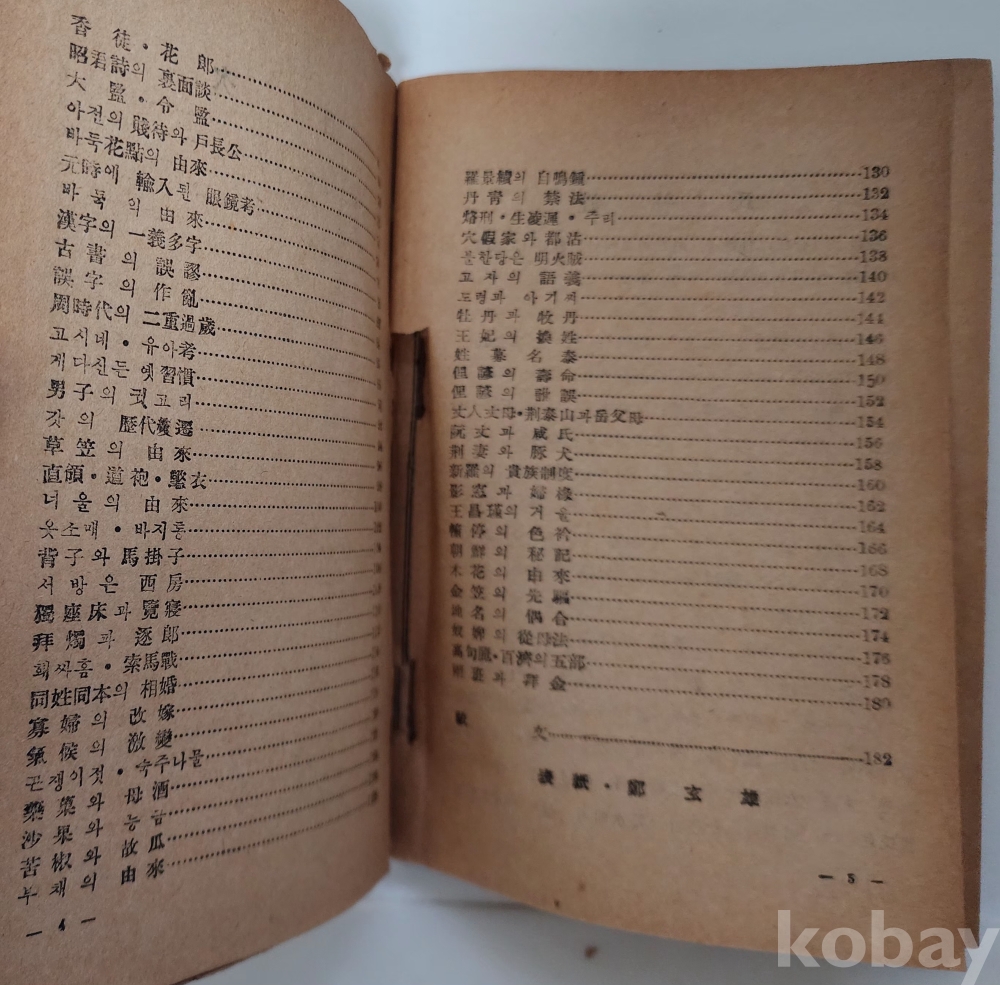 香徒・花郎
昭君詩의 裏面談
大監・令監
아전의 賤待와 戶長公
바둑花點의 由來
元時에 輸入된 眼鏡考
바둑의 由來
漢字의 一義多字
古書의 誤謬
誤字의 作亂
周時代의 二重過歲
고시네・유아考
게다신든 옛習慣
男子의 귓고리
갓의 歷代變遷
草笠의 由來
直領・道袍・氅衣
너울의 由來
옷소매・바지통
背子와 馬掛子
서방은 西房
獨座床과 覓寢
拜燭과 逐郎
횃싸흠・索馬戰
同姓同本의 相婚
寡婦의 改嫁
氣候의 激變
곤쟁이젓・숙주나물
藥菓와 母酒
沙果와 능금
苦椒와 故瓜
부채의 由來
— 4 —
羅景績의 自鳴鍾 130
丹靑의 禁法 132
烙刑・生凌遲・주리 134
穴假家와 都活 136
불한당은 明火賊 138
고자의 語義 140
도령과 아기씨 142
牡丹과 牧丹 144
王妃의 換姓 146
姓墓名泰 148
俚諺의 壽命 150
俚諺의 訛誤 152
丈人丈母・荊泰山과岳父母 154
阮丈과 咸氏 156
荊妻와 豚犬 158
新羅의 貴族制度 160
王昌瑾의 거울 162
의 色衿 164
朝鮮의 秘記 166
木花의 由來 168
金笠의 先驅 170
地名의 偶合 172
奴婢의 從母法 174
高句麗・百濟의五部 176
178
180
跋文 182
表紙・鄭玄雄
— 5 —
kobay